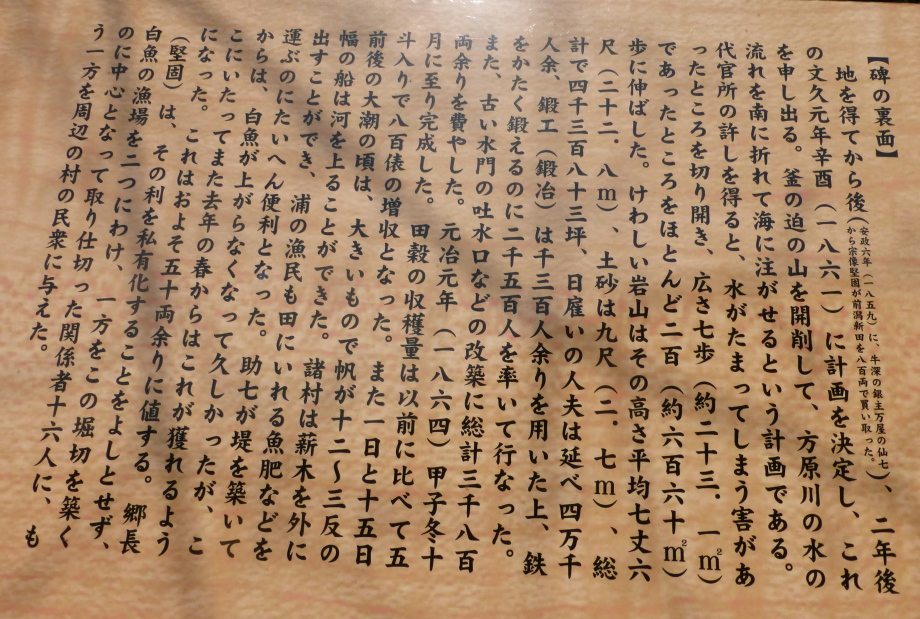 【碑の裏面】
地を得てから後(安政六年(一八五九)に、牛深の銀主万屋の仙七から宗像堅固が前潟新田を八百両で買い取った。)、二年後
の文久元年辛酉(一八六一)に計画を決定し、これ
を申し出る。釜の迫の山を開削して、方原川の水の
流れを南に折れて海に注がせるという計画である。
代官所の許しを得ると、水がたまってしまう害があ
ったところを切り開き、広さ七歩(約二十三.一㎡)
であったところをほとんど二百(約六百六十㎡)
歩に伸ばした。けわしい岩山はその高さ平均七丈六
尺(二十二.八m)、土砂は九尺(二.七m)、総
計で四千三百八十三坪、日雇いの人夫は延べ四万千
人余、鍛工(鍛冶)は千三百人余りを用いた上、鉄
をかたく鍛えるのに二千五百人を率いて行なった。
また、古い水門の吐水口などの改築に総計三千八百
両余りを費やした。元冶元年(一八六四)甲子冬十
月に至り完成した。田穀の収穫量は以前に比べて五
斗入りで八百俵の増収となった。また一日と十五日
前後の大潮の頃は、大きいもので帆が十二~三反の
幅の船は河を上ることができた。諸村は薪木を外に
出すことができ、浦の漁民も田にいれる魚肥などを
運ぶのにたいへん便利となった。助七が堤を築いて
からは、白魚が上がらなくなって久しかったが、こ
こにいたってまた去年の春からはこれが獲れるよう
になった。これはおよそ五十両余りに値する。郷長
(堅固)は、その利を私有化することをよしとせず、
白魚の漁場を二つにわけ、一方をこの堀切を築く
のに中心となって取り仕切った関係者十六人に、も
う一方を周辺の村の民衆に与えた。